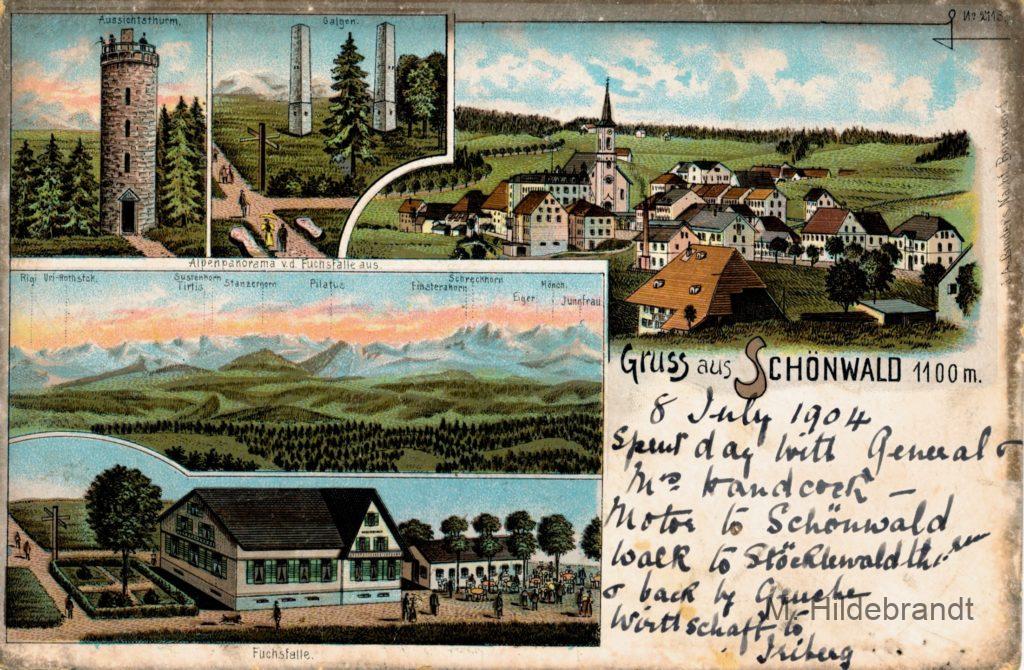 Aussichtsthurm.
Galgen.
No 2113
Alpenpanorama v.d. Fuchsfalle aus.
Rigi Uri-Rothstok. Sustenhorn Titlis Stanzerhorn Pilatus Schreckhorn Finsterahorn Eiger Mönch. Jungfrau
Gruss aus SCHÖNWALD 1100 m.
8 July 1904
Spent day with General &
Mrs Handcock –
Motor to Schönwald
walk to
& back by
Wirthschaft to
Triberg
M. Hildebrandt
Fuchsfalle.